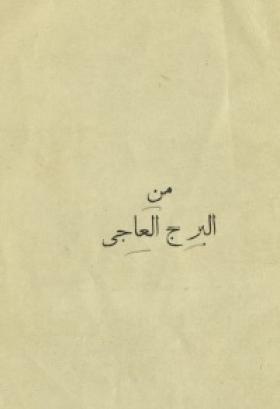 من
البرج العاجى